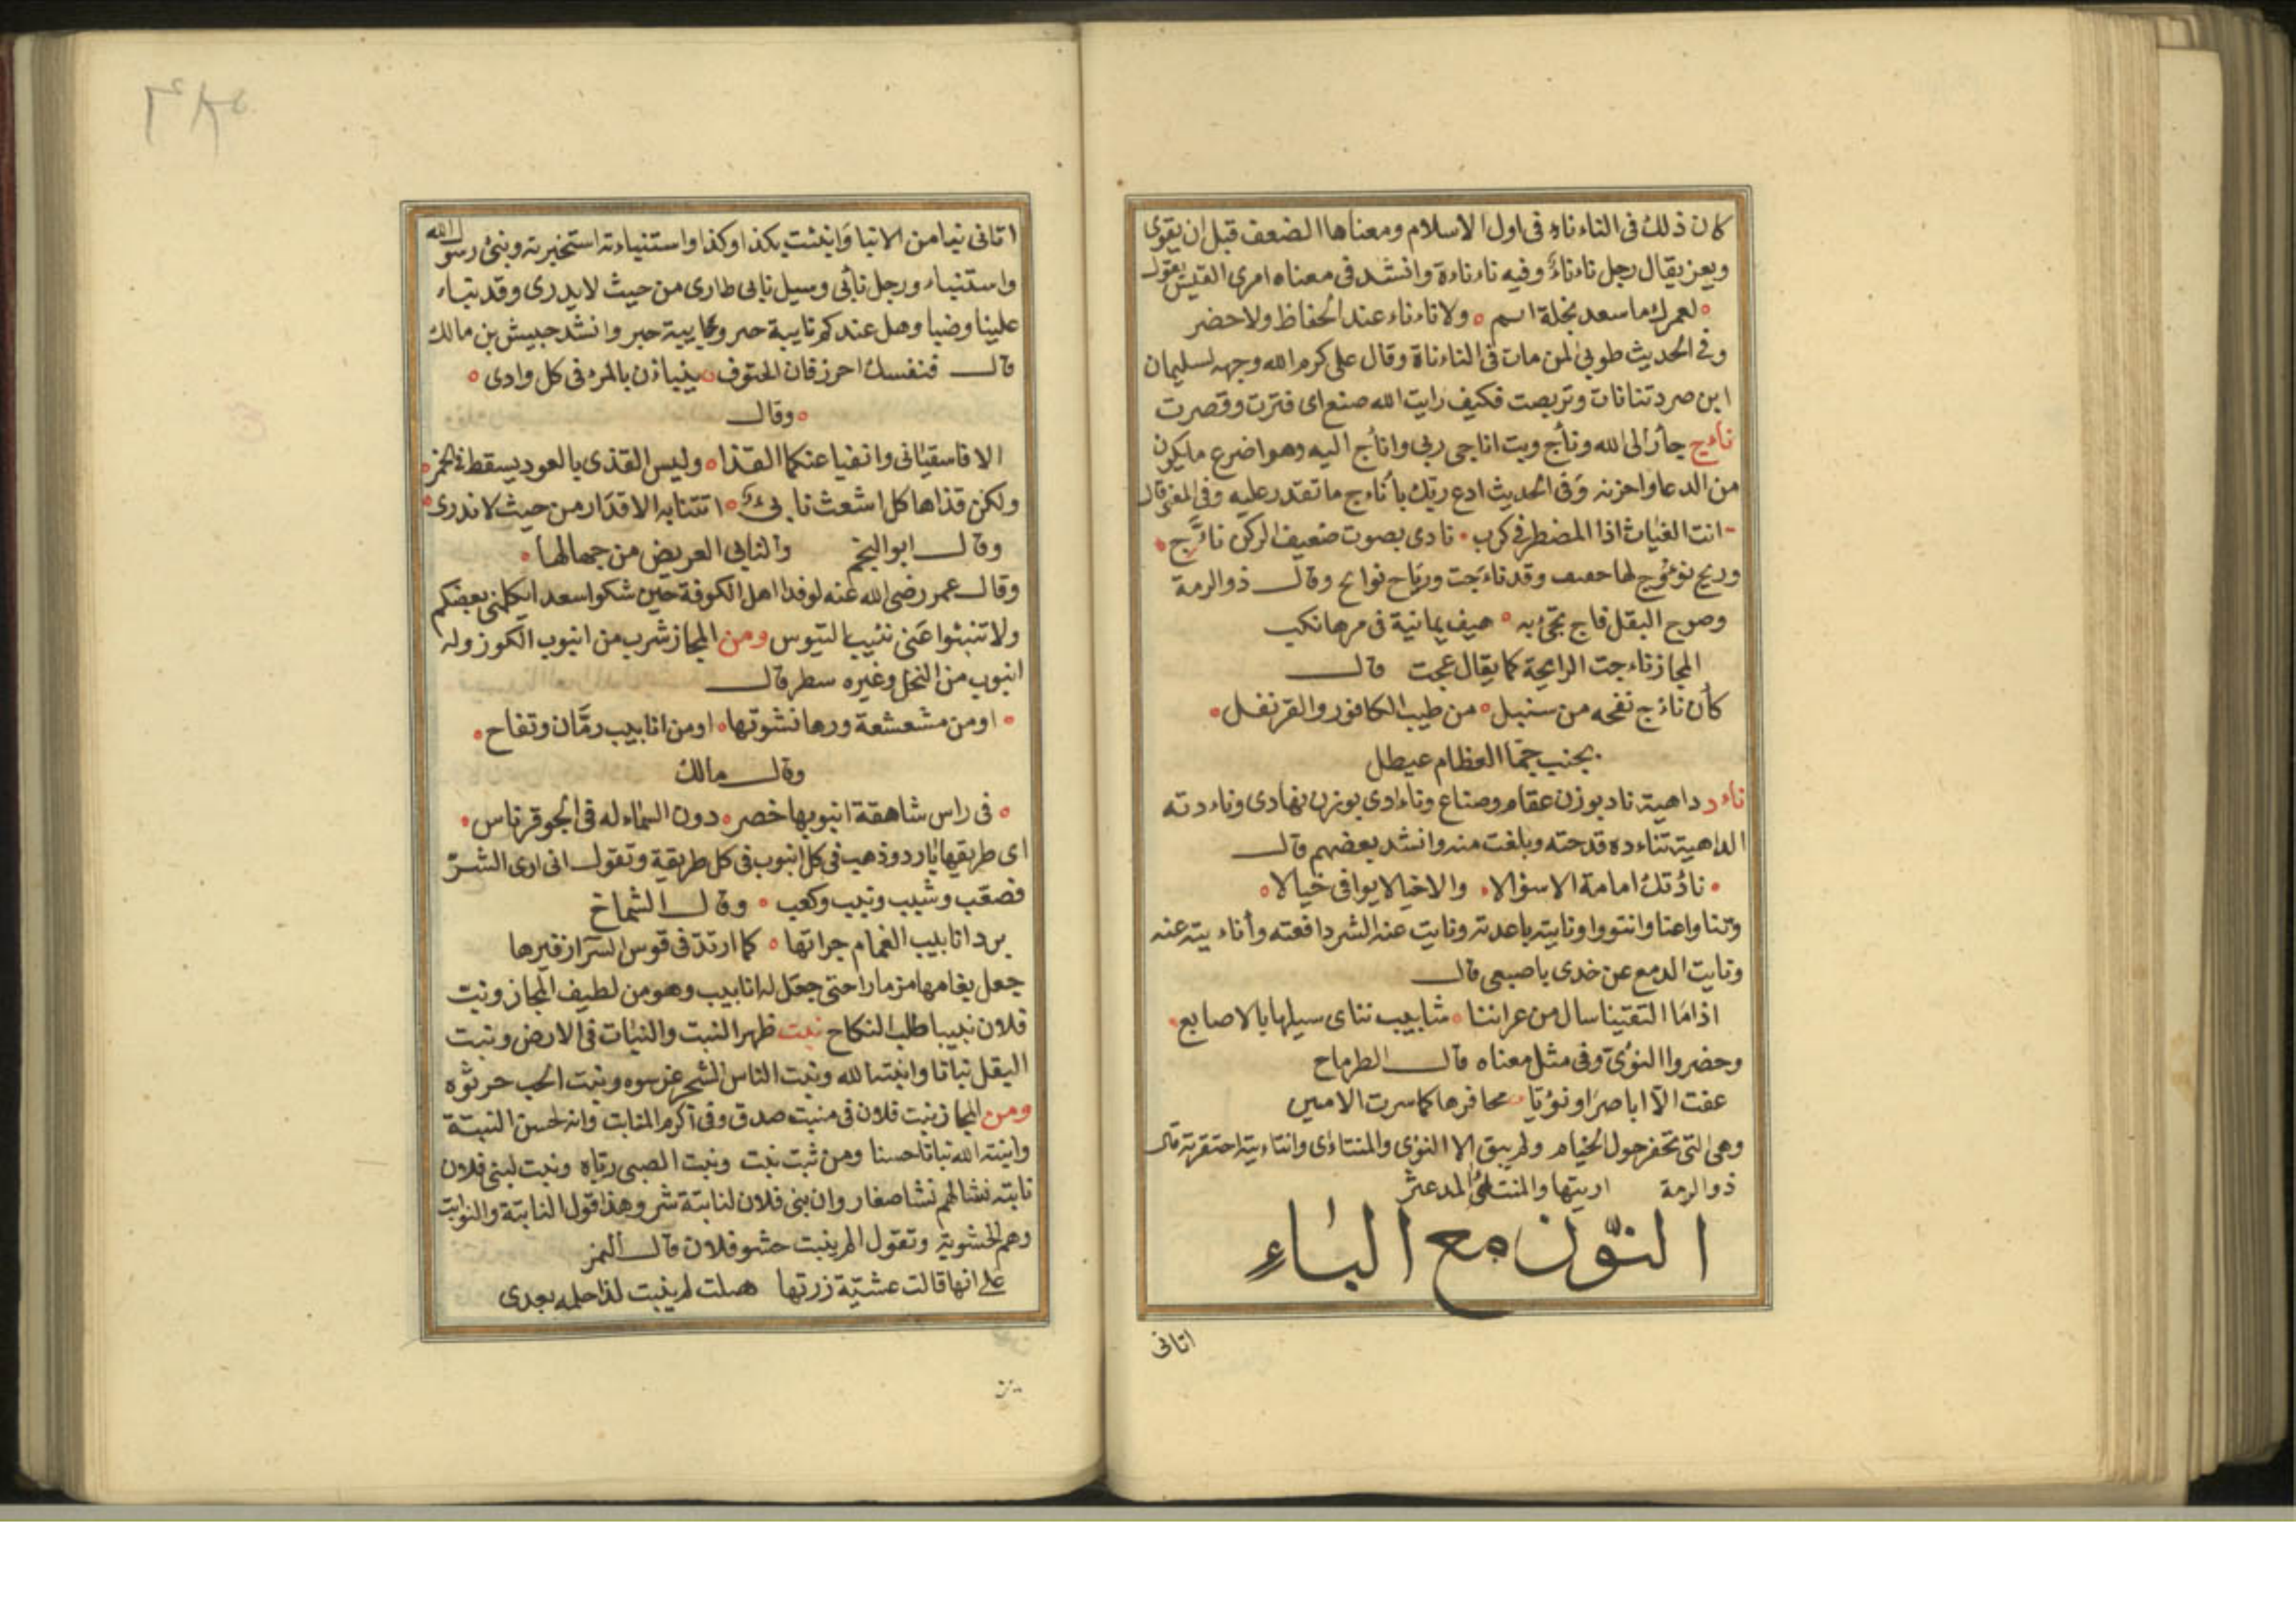 كان ذلك فى الناءناه فى اول الاسلام ومعناها الضعف قبل ان يقوى
ويعز يقال رجل ناءناءٌ وفيه ناءناءة وانشد فى معناه امرى القيس يقول
لعمرك ما سعد بخلة اسم ولا ناءناء عند الحفاظ ولا حضر
وفى الحديث طوبى لمن مات فى الناءناة وقال على كرم الله وجهه لسليمان
ابن صرد تنانات وتربصت فكيف رايت الله صنع اى فترت وقصرت
نأج جأر الى الله ونأج وبت اناجى ربى وانأج اليه وهو اضرع ما يكون
من الدعا واحزنه وفى الحديث ادع ربك بأناج ما تقدر عليه وفى المغرقال
انت الغياث اذا المضطر فى كرب نادى بصوت ضعيف الركن نائج
وريح نؤوج لها وقد ناءجت ورياح نوائج وقال ذو الرمة
وصوح البقل ناج تجئ به هيف يمانية فى مرها نكب
المجاز ناءجت الرايحة كما يقال عجت قال
كأن نائج نفحه من سنبل من طيب الكافور والقرنفل
بجنب جما العظام عيطل
ناءد داهية ناد بوزن عقام وصناع وناءادى بوزن نهادى وناءدته
الداهية تناءده فدحته وبلغت منه وانشد بعضهم قال
نادُتك امامة الا سؤالا والا خيالا يوافى خيالا
وتناوا عنا وانتووا ونايته باعدته ونايت عنه الشر دافعته وأناءيته عنه
ونايت الدمع عن خدى باصبعى قال
اذا ما التقينا سال من عبراتنا شابيب نناى سيلها بالاصابع
وحضروا النؤى وفى مثل معناه قال الطرماح
عفت الا اياصرا ونؤيا محافرها كما سرت الامين
وهى التى تحفر حول الخيام ولم يبق الا النؤى والمنتاءى وانتاءيته احتفرته قال
ذو الرمة اريتها والمنتأى المدعثر
النّون مع الباء
اتانى
اتانى نبا من الانبا وانبئت بكذا وكذا واستنباءته استخبرته ونبئ رسول الله
واستنباء ورجل نابئ وسيل نابى طارى من حيث لا يدرى وقد نباء
علينا وضبا وهل عندكم نابية خبر وجايبة خبر وانشد حبيش بن مالك
قال فنفسك احرز فان الحتوف ينبان بالمرء فى كل وادى
وقال
الا فاسقيانى وانفيا عنكما القذا وليس القذى بالعود يسقط فى الخمر
ولكن قذاها كل اشعث نابئ اتتنا به الاقدار من حيث لا ندرى
وقال ابو النجم والنابى العريض من جهالها
وقال عمر رضى الله عنه لوفد اهل الكوفة حين شكوا سعد ايكلمنى بعضكم
ولا تنبوا عنى نبيب التيوس ومن المجاز شرب من انبوب الكوز وله
انبوب من النخل وغيره سطر قال
او من مشعشعة ورها نشوتها او من انابيب رمّان وتفاح
وقال مالك
فى راس شاهقة انبوبها خصر دون السماء له فى الجو قرناس
اى طريقها بارد وذهب فى كل انبوب فى كل طريقة وتقول انى ارى الشرّ
فصعّب وشبب ونبب وكعب وقال الشماخ
برد انابيب الغمام جراتها كما ارتد فى قوس السراز فيرها
جعل بغامها مزمارا حتى جعل له انابيب وهو من لطيف المجاز ونبت
فلان نبيبا طلب النكاح نبت ظهر النبت والنبات فى الارض ونبت
البقل نباتا وانبته الله ونبت الناس الشجر غرسوه ونبت الحب حرثوه
ومن المجاز نبت فلان فى منبت صدق وفى اكرم المنابت وانه لحسن النبتة
وانبته الله نباتا حسنا ومن ثبت نبت ونبت الصبى رباه ونبت لبنى فلان
نابته نشا لهم نشا صغار وان بنى فلان لنابتة شر وهذا قول النابتة والنوابت
وهم الحشوية وتقول الم ينبت حشو فلان قال النمر
على انها قالت عشيّة زرتها هبلت لم ينبت لذا حلمه بعدى